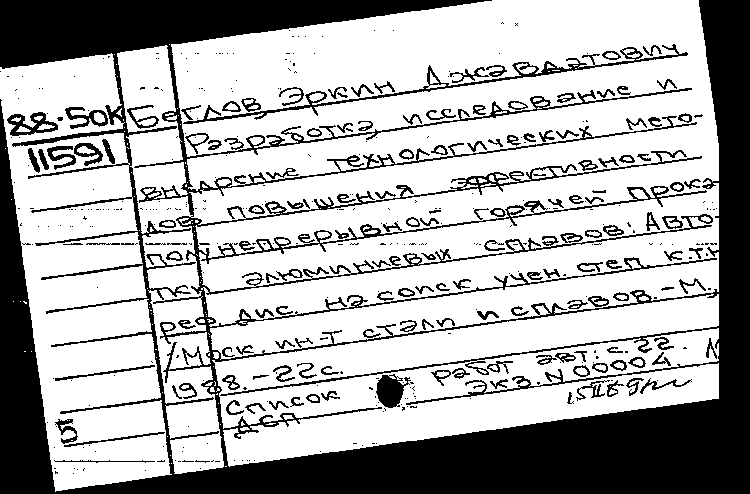 88-50К Беглов, Эркин Джавдатович
11591 Разработка, исследование и
внедрение технологических мето-
дов повышения эффективности
полунепрерывной горячей прока-
тки алюминиевых сплавов: Авто-
реф. дис. на соиск. учен. степ. к.т.н
/Моск. ин-т стали и сплавов.-М.,
1988.-22с.
Список работ авт.: с.22.
ДСП Экз.N00004.
5